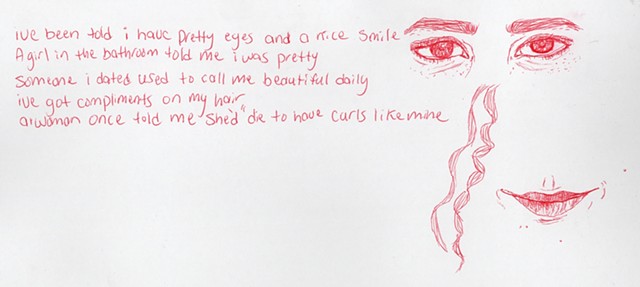 ive been told i have pretty eyes and a nice smile
A girl in the bathroom told me i was pretty
Someone i dated used to call me beautiful daily
ive got compliments on my hair
a woman once told me "she'd" die to have curls like mine